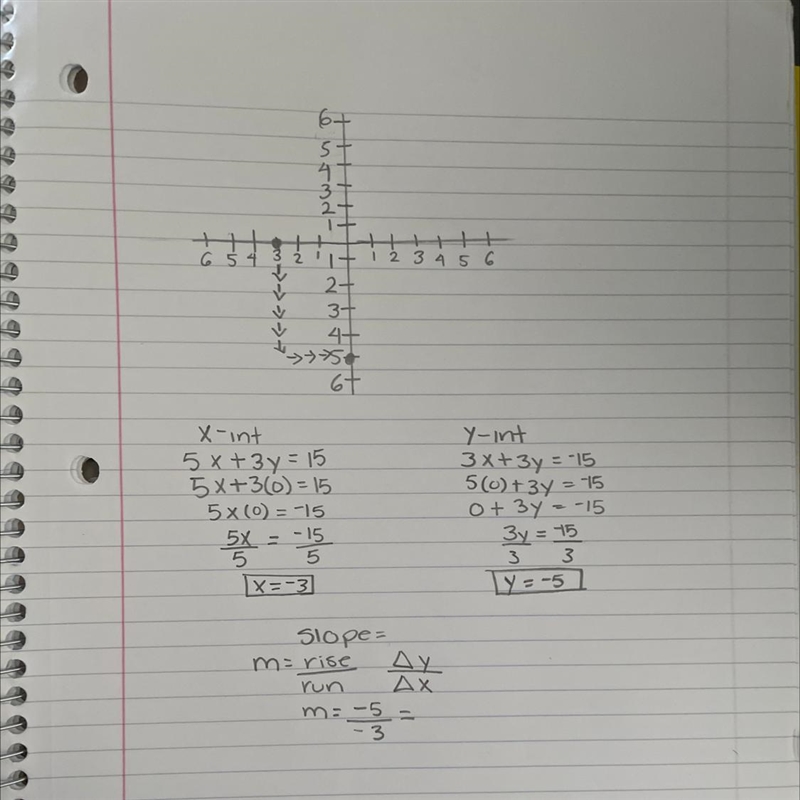 6
5
4
3
2
1
6 5 4 3 2 1 1 1 2 3 4 5 6
2
3
4
5
6
x-int
5x+3y=15
5x+3(0)=15
5x(0)=-15
5x/5 = -15/5
x=-3
y-int
3x+3y=-15
5(0)+3y=-15
0+3y=-15
3y/3 = -15/3
y=-5
Slope=
m=rise/run Δy/Δx
m=-5/-3=